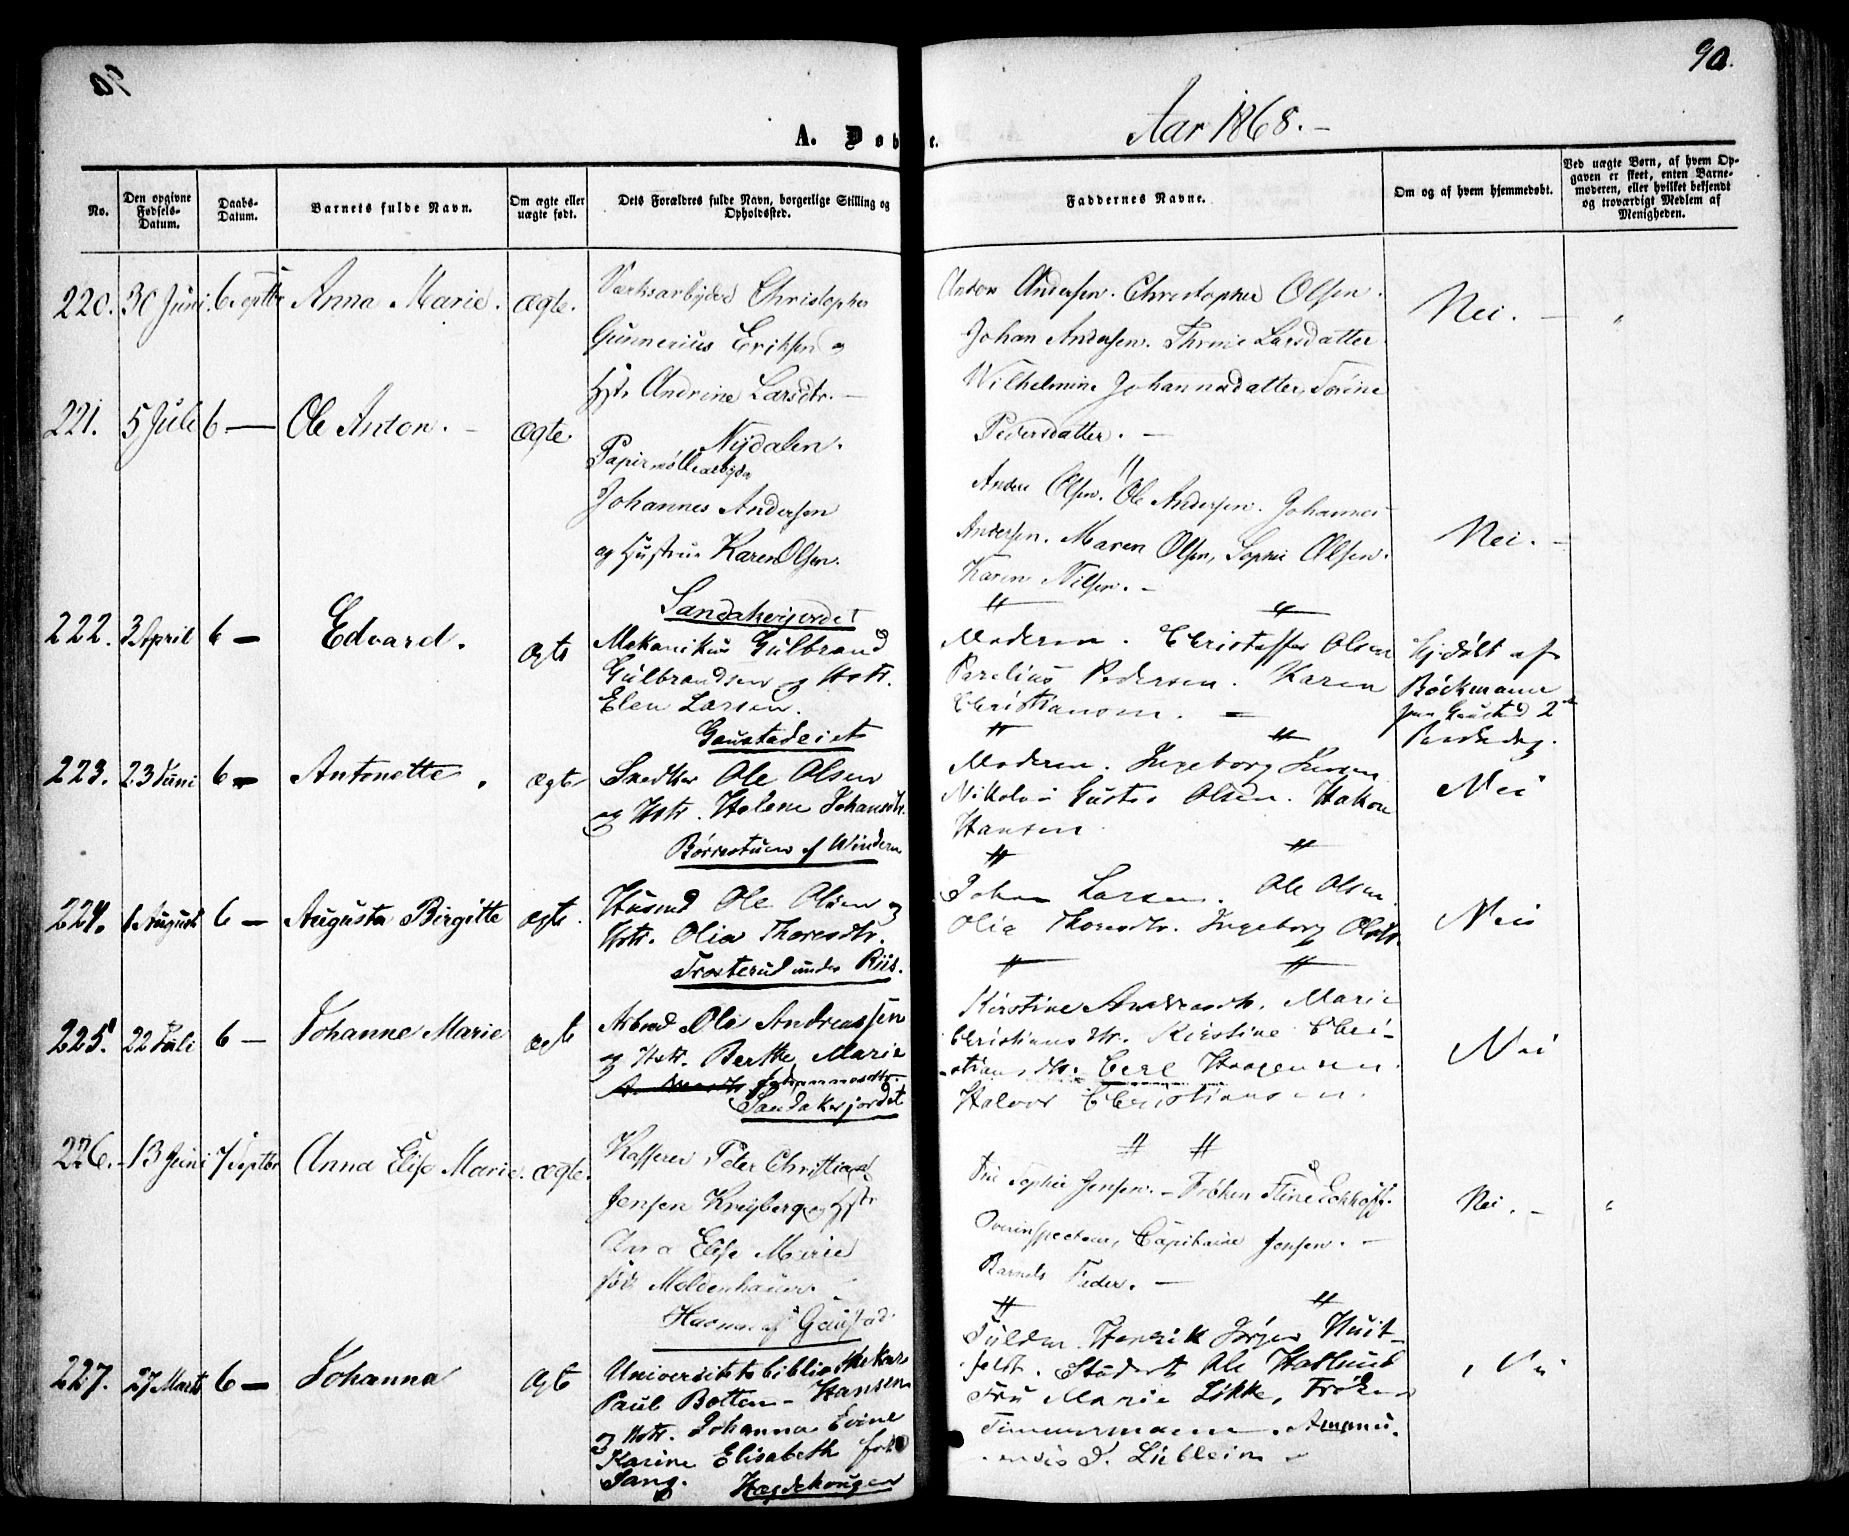 90.
Aar 1868.-
A. Døbte.
No.
Den opgivne Fødsels-Datum.
Daabs-Datum.
Barnets fulde Navn.
Om ægte eller uægte født.
Dets Forældres fulde Navn, borgerlige Stilling og Opholdssted.
Faddernes Navne.
Om og af hvem hjemmedøbt.
Ved uægte Børn, af hvem Opgaven er skeet, enten Barnemoderen, eller hvilket bekjendt og troværdigt Medlem af Menigheden.
220. 30 Juni 6 Septbr Anna Marie. ægte.
Værksarbeider Christopher
Gunnerius Eriksen og
Hstr Andrine Larsdtr. -
Nydalen.
Anton Andersen. Christopher Olsen.
Johan Andersen. Larsdatter
Wilhelmine Johannesdatter,
Pedersdatter. -
Nei. -
221. 5 Juli 6 - Ole Anton. - ægte.
Papirmøllearbeider
Johannes Andersen
og Hustru Karen Olsen.
Sandakerjordet
Olsen. Ole Andersen. Johannes
Andersen. Maren Olsen, Sophie Olsen.
Karen Nilsen. -
Nei. -
222. 3 April 6 - Edvard. ægte
Mekanikus Gulbrand
Gulbrandsen og Hstr.
Elen Larsen.
Gaustadeiet
Moderen. Christoffer Olsen
Pedersen. Karen
Christiansen. =
Hjdøbt af
Bøckmann
paa Gaustad 2den
Paaskedag.
223. 23 Juni 6 - Antonette. ægte
Snedker Ole Olsen
og Hstr. Helene Johansdtr.
Børrestuen af Vinderen
Moderen. Ingeborg
Nikolai Gustav Olsen. Hakon
Hansen
Nei
224. 1 August 6 - Augusta Birgitte ægte.
Husmd Ole Olsen og
Hstr. Olia Thoresdtr.
Frosterud under Riis.
Johan Larsen. Ole Olsen.
Olia Thoresdtr. Ingeborg Olsdtr.
Nei
225. 22 Juli 6 - Johanne Marie ægte
Arbmd Ole Andreassen
og Hstr. Berthe Marie
Johannesdtr.
Sandakerjordet
Kirstine Andreasdtr. Marie
Christiansdtr. Kirstine Chri-
stiansdtr. Carl Haagensen.
Halvor Christiansen.
Nei
226. 13 Juni 7 Septbr Anna Elise Marie. ægte.
Kasserer Peter Christian
Jensen Kreyberg og Hstr
Anna Elise Marie
født Moldenhauer
af Gaustad.
Fru Sophie Jensen. - Frøken Stine Eckhoff.
Overinspecteur, Capitaine Jensen. -
Barnets Fader. -
Nei. -
227. 27 Marts 6 - Johanna ægte
Universitetsbibliothekar
Paul Botten-Hansen
og Hstr. Johanna Evine
Karine Elisabeth født
Sang. Hægdehougen
Henrik Jørgen Huit-
feldt. Student Ole Haslund
Fru Marie Løkke, Frøken
Timmermann. Amanu-
ensis J. Lieblein
Nei